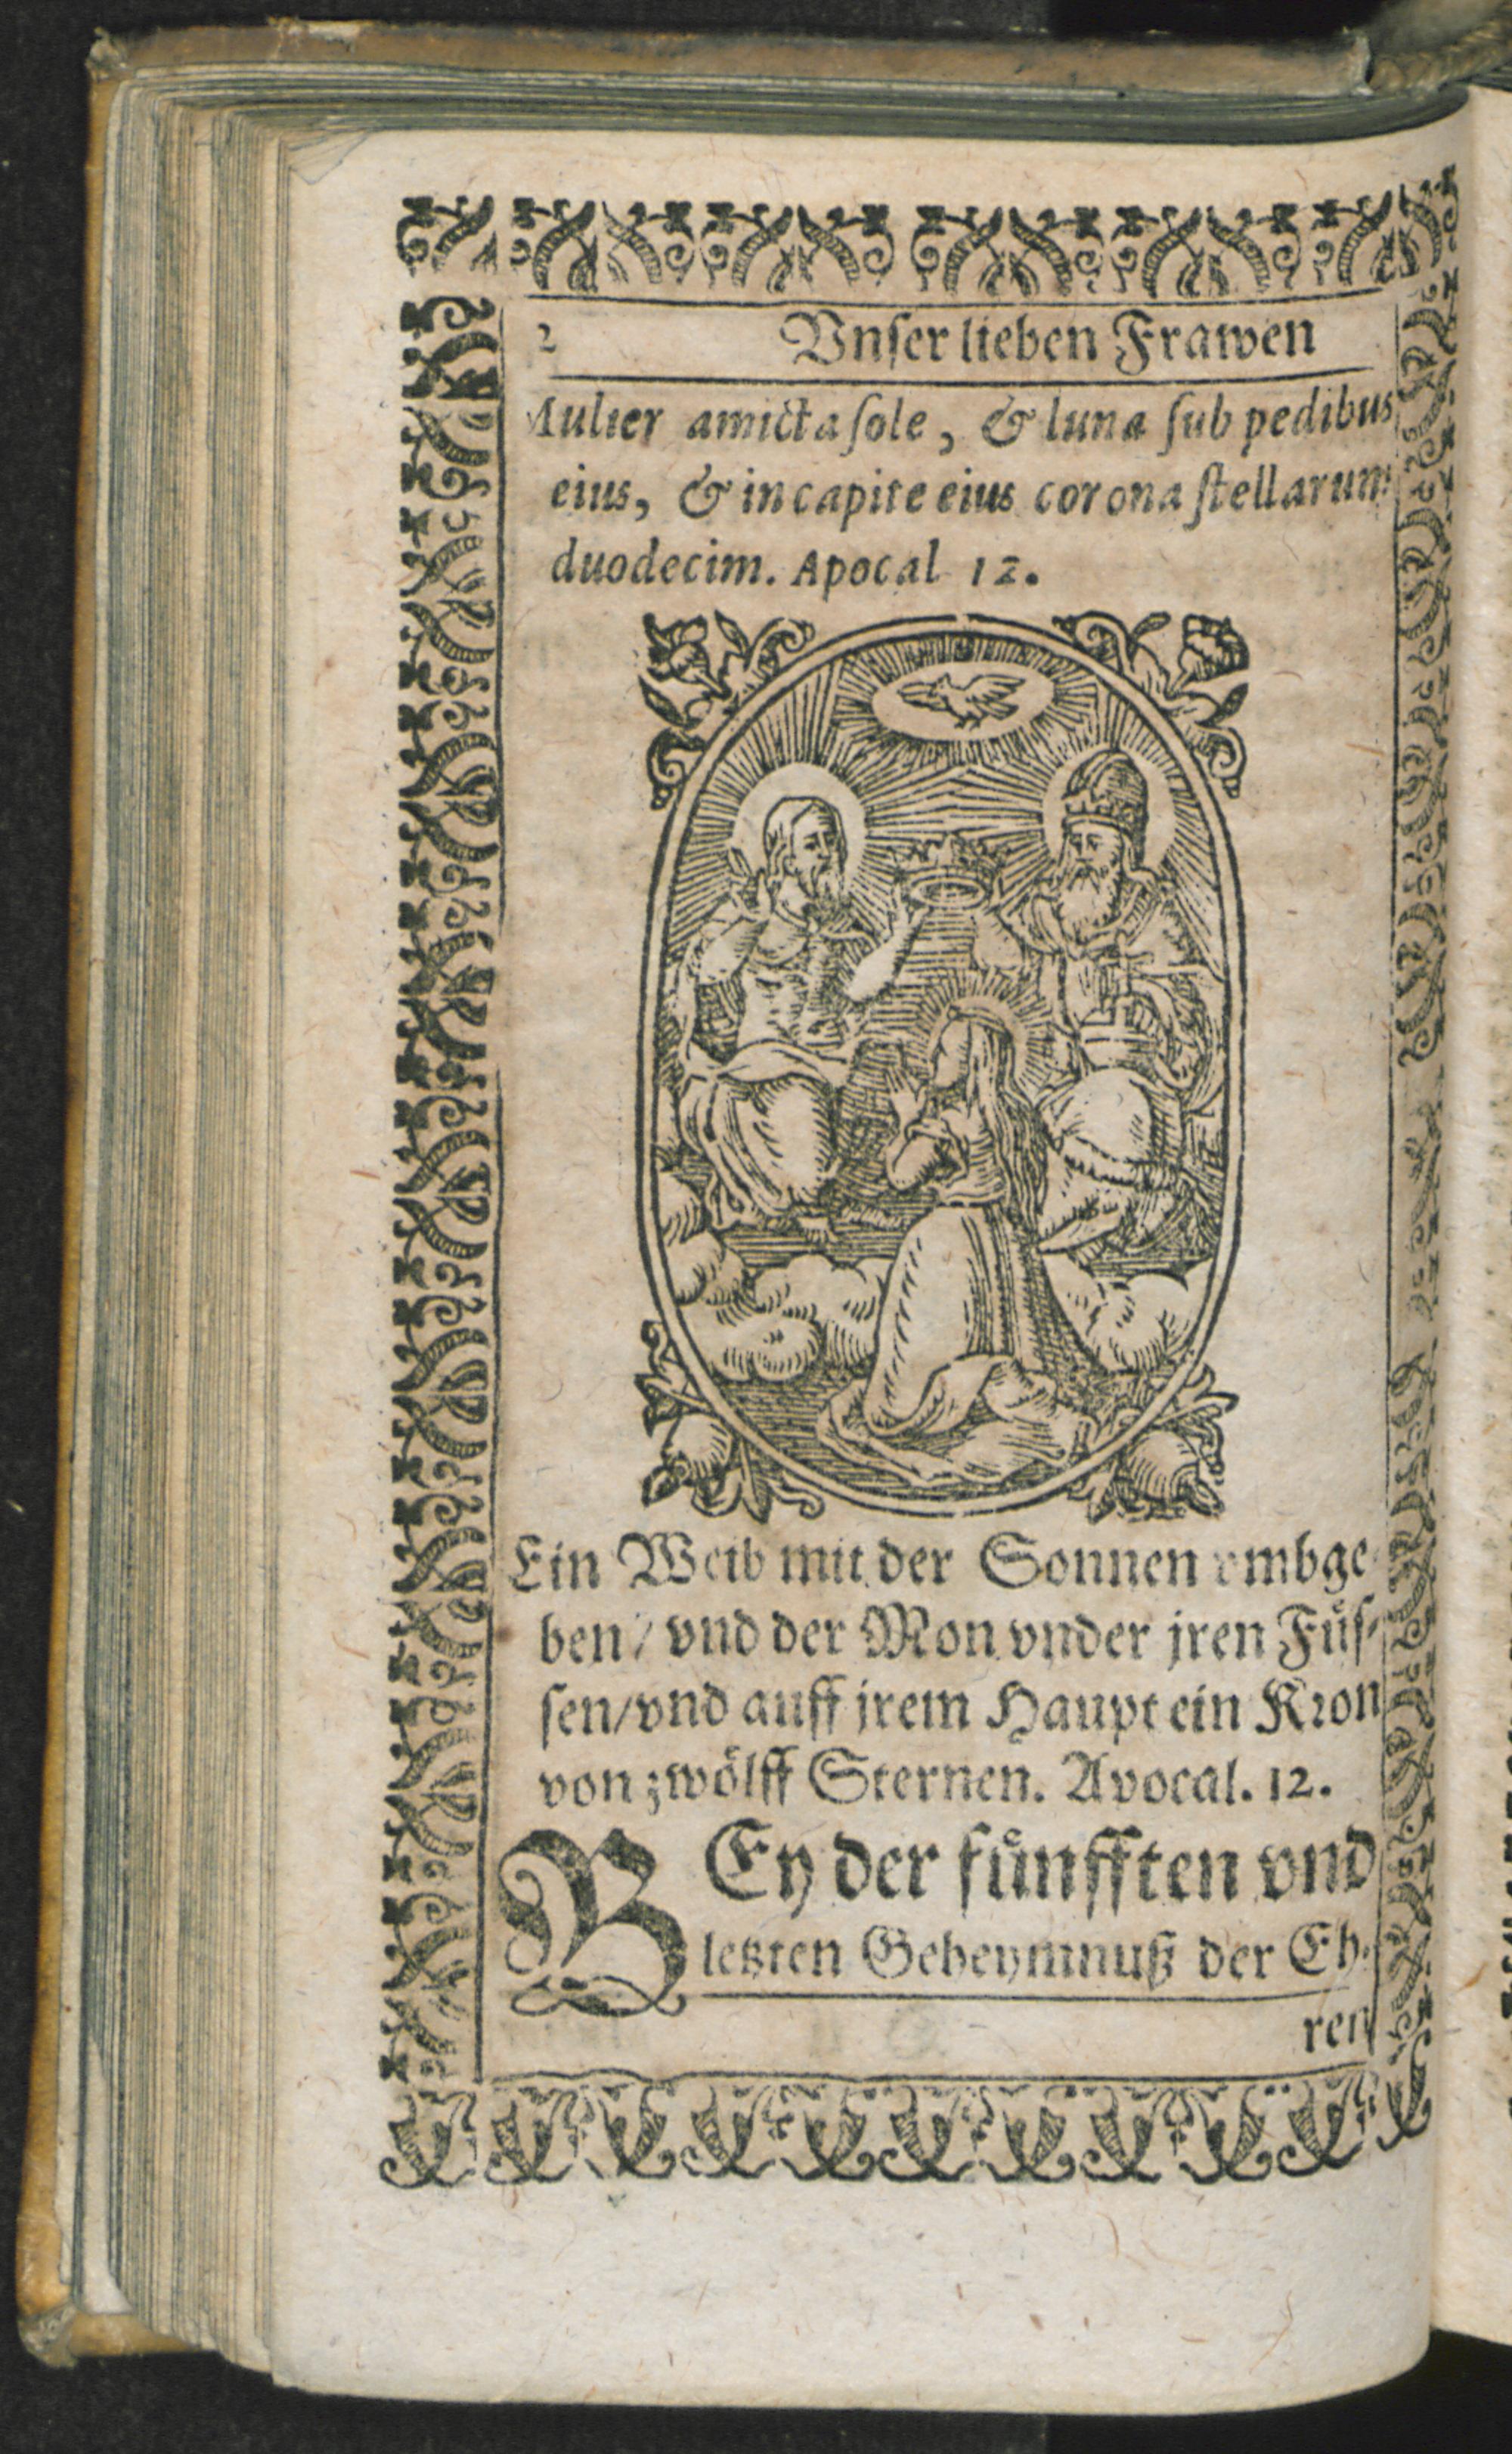 2 Vnſer lieben Frawen
Mulier amicta ſole, & luna ſub pedibus
eius, & in capite eius corona ſtellarum
duodecim. Apocal 12.
Ein Weib mit der Sonnen vmbge-
ben / vnd der Mon vnder jren Fuͤſ-
ſen / vnd auff jrem Haupt ein Kron
von zwoͤlff Sternen. Apocal. 12.
BEy der fuͤnfften vnd
letzten Geheymnuß der Eh-
ren